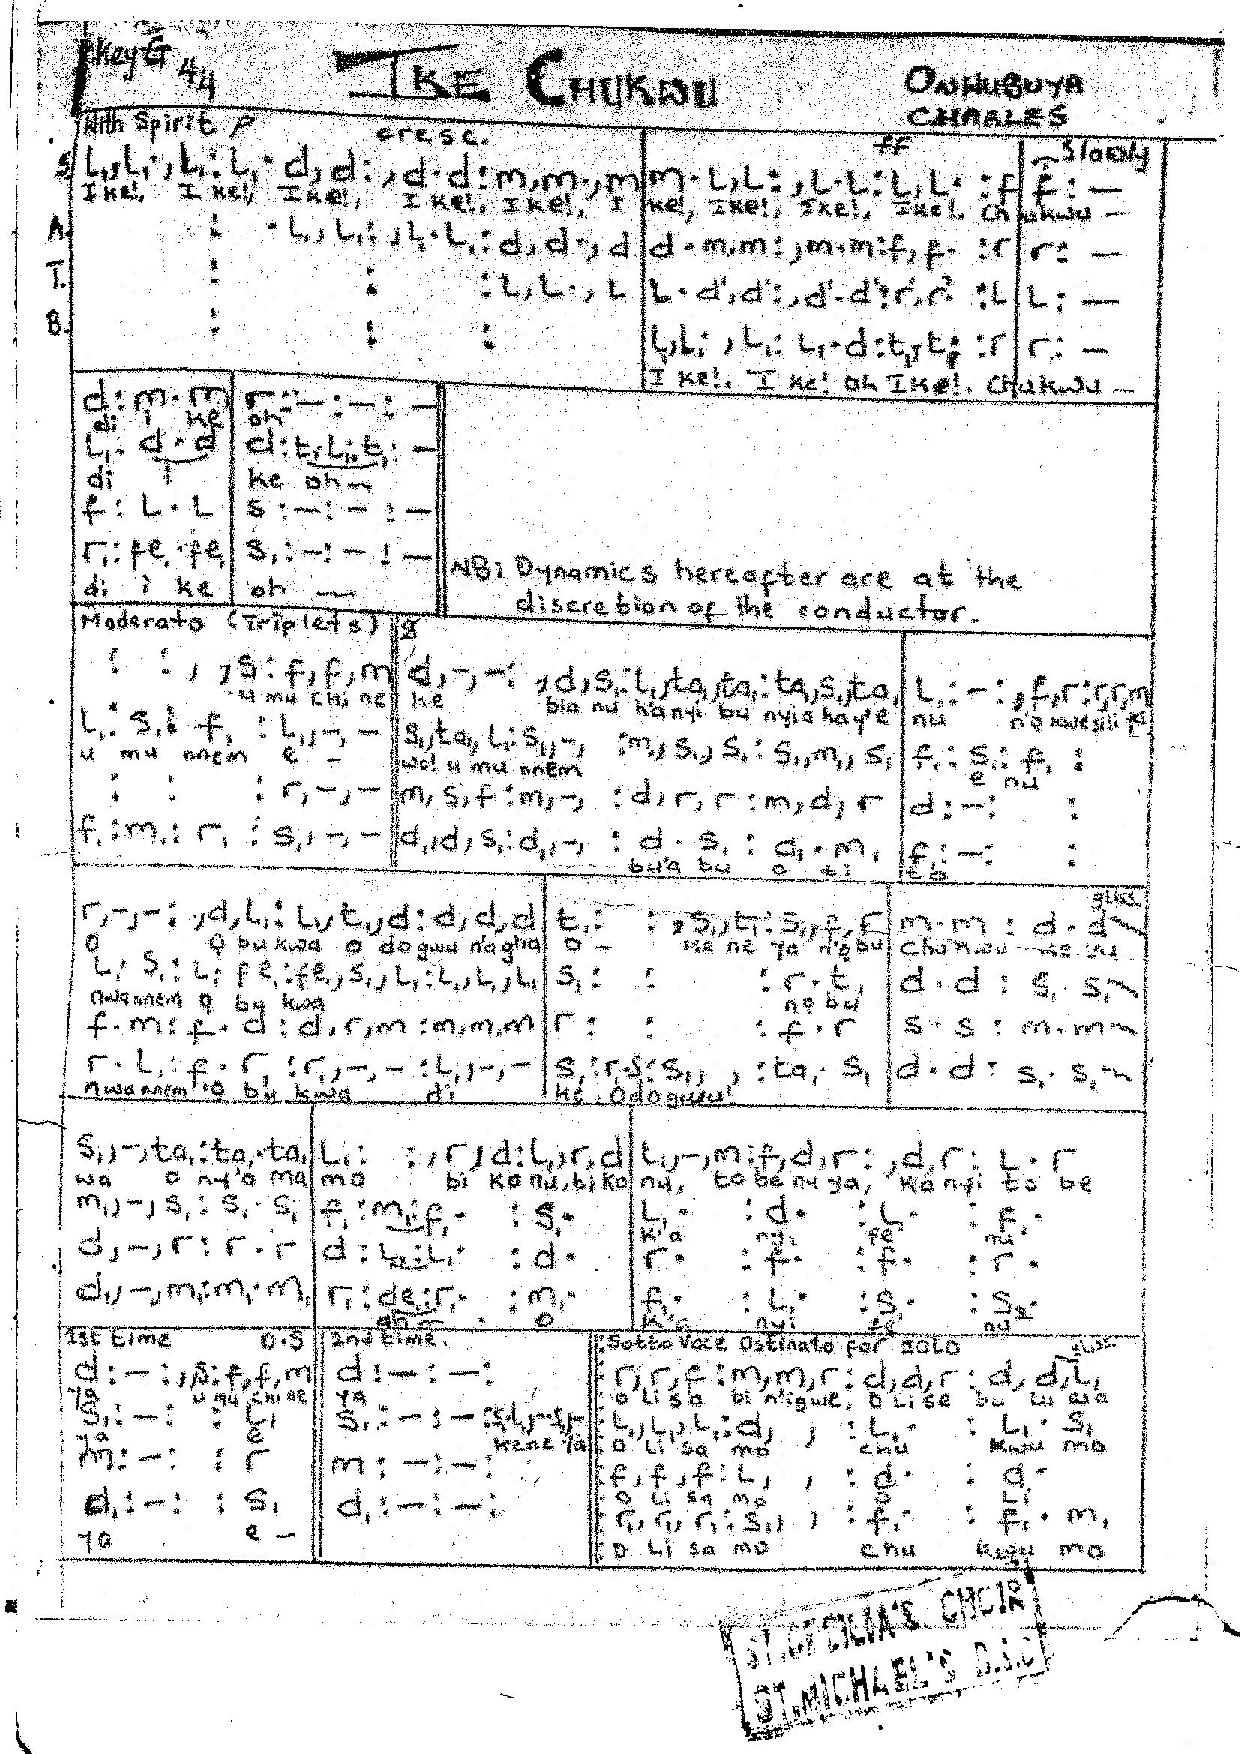 Key G 4/4 IKE CHUKWU ONWUBUYA
CHARLES
With Spirit P cresc. ff Slowly
S L,,L,:,L,:L,.d,d:,d.d:m,m.,m m.L,L:,L.L:L,L.:f f:—
I ke!, I ke!, I ke!, I ke!, I ke!, I ke!, I ke!, I ke!, I ke!. Chukwu —
A. : .L,,L,:,L,.L,:d,d.,d d.m,m:,m.m:f,f. :r r: —
T. : : :L,L.,L L.d',d':,d'.d':r',r' :L L: —
B. : : : L,,L,: ,L,: L,.d:t,,t,: :r r: —
I ke!. I ke! oh I ke!. Chukwu —
d:m.m r:—:—:—
di i ke oh
L,: d.d d:t,.L,:t,:—
di i ke oh
f: L.L s:—:—:—
r,:fe,.fe, s,:—:—:—
di i ke oh —
NB: Dynamics hereafter are at the
discretion of the conductor.
Moderato (Triplets) %
: : , ,s:f,f,m d,—,—: ,d,s,:L,,ta,,ta,:ta,,s,,ta, L,:—:,f,r:r,r,m
u mu chi ne ke bia nu ka nyi bu nyia ha y'e nu
L,:s,: f, :L,,—,— s,,ta,,L,:s,,—, :m,,s,,s,:s,,m,,s, f,:s,:f, :
u mu nnem e — wo! u mu nnem e nu
: : :r,—,— m,s,f:m,—, :d,r,r:m,d,r d:—: :
f,:m,:r, :s,,—,— d,d,s,:d,,—, :d.s,:d,.m, f,:—: :
bu'a bu o ti
r,—,—:,d,L,:L,,t,,d:d,d,d t,: :,s,,t,:s,,f,,f, m.m:d.d
o o bu kwa o dogwu n'agha o — ke ne ya n'o bu Chukwu
L,.s,:L,.fe,:fe,,s,,L,:L,,L,,L, s,: : :r.t, d.d:s,.s,
nwannem o bu kwa no bu
f.m:f.d:d,r,m:m,m,m r: : :f.r s.s:m.m
r.L,:f,.r,:r,,—,—:L,,—,— s,:r,.s,:s,, , :ta,.s, d.d:s,.s,
nwannem o bu kwa di ke Odogwu!
s,,—,ta,:ta,.ta, L,: :,r,d:L,,r,d L,,—,m:f,d,r:,d,r:L.r
wa o ny'o ma mo bi ko nu, biko nu, to be nu ya, ka nyi to be
m,,—,s,:s,.s, f,:m,:f,. :s,. L,. :d. :L,. :f,.
k'a nyi fe nu
d,—,r:r.r d:L,:L,. :d. r. :f. :f. :r.
d,,—,m,:m,.m, r,:de,:r,. :m,. f,. :L,. :s,. :s,.
o k'a nyi fe nu
1st time D.S 2nd time. Sotto Voce Ostinato for Solo
d:—:,s:f,f,m d:—:—: r,r,f:m,m,r:d,d,r:d,d,L,
ya u mu chi ne ya O li sa bi n'igwe, O li se bu lu wa
s,:—: :L, s,:—:—: L,,L,,L,:d, , :L,. :L,.s,
ya e kene ya O li sa mo chu kwu mo
m:—: :r m:—:—: f,f,f:L, , :d. :d.
O li sa mo O Li
d,:—: :s, d,:—:—: r,,r,,r,:s,, , :f,. :f,.m,
ya e — O Li sa mo chu kwu mo
ST. CECILIA'S CHOIR
ST. MICHAEL'S D.S.C